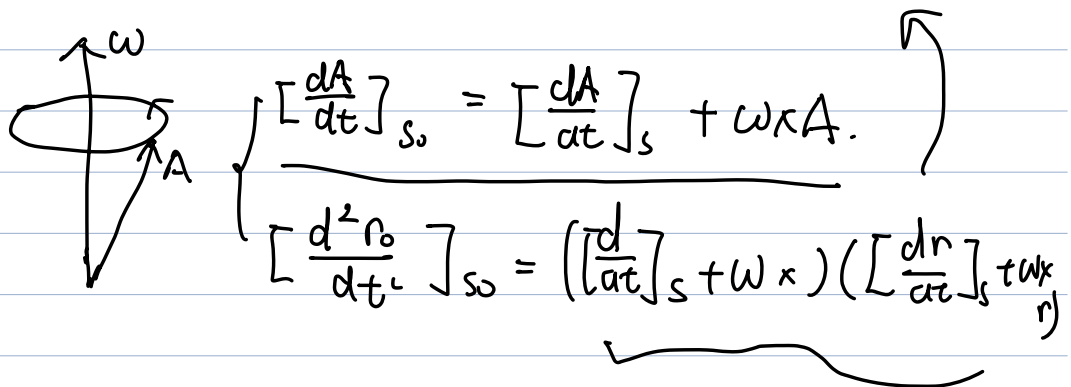 ω
[dA/dt]_{S₀} = [dA/dt]_S + ω×A.
A
[d²r₀/dt²]_{S₀} = ([d/dt]_S + ω×)([dr/dt]_S + ω×
r)